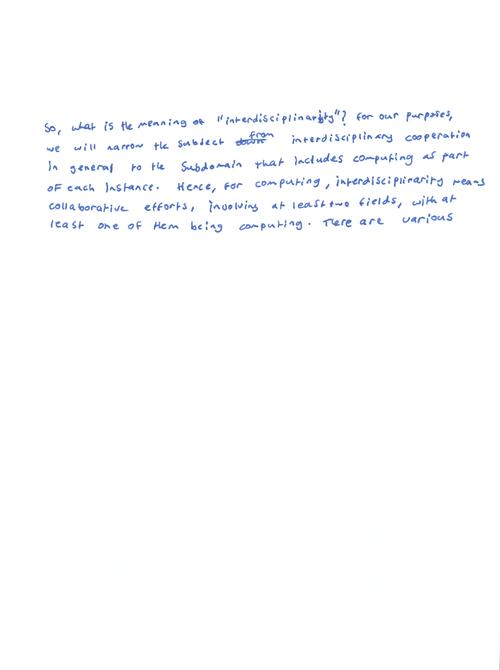 So, what is the meaning of "interdisciplinarity"? for our purposes,
we will narrow the subdect from interdisciplinary cooperation
in general to the subdomain that includes computing as part
of each instance. Hence, for computing, interdisciplinarity means
collaborative efforts, involving at least two fields, with at
least one of them being computing. There are various